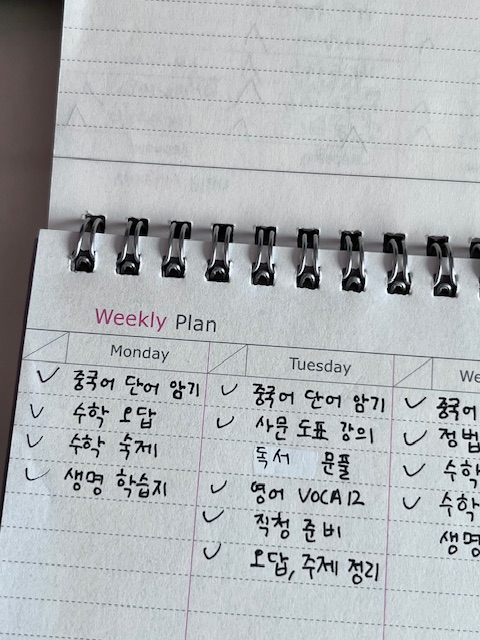 Weekly Plan
Monday
중국어 단어 암기
수학 오답
수학 숙제
생명 학습지
Tuesday
중국어 단어 암기
사문 도표 강의
독서 문풀
영어 VOCA 12
직청 준비
오답, 주제 정리
We
중국어
정법
수학
수학
생명